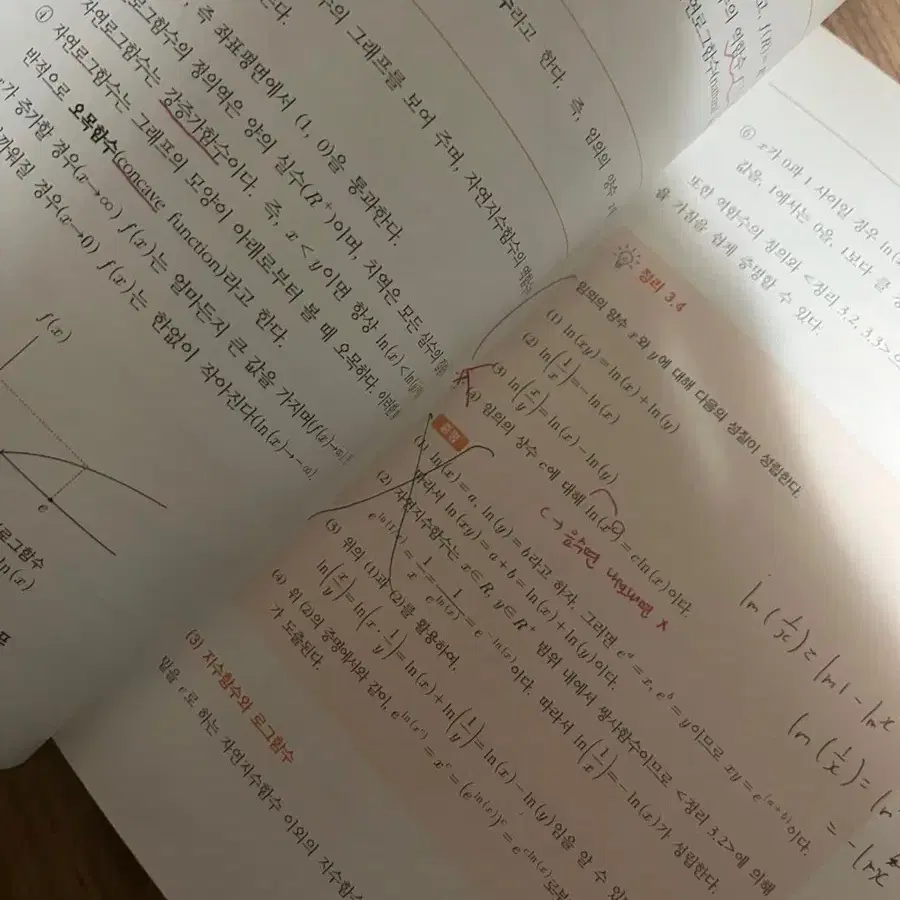 수의 그래프를 보여 주며, 자연지수함수의 역함수
즉 좌표평면에서 (1, 0)을 통과한다.
자연로그함수의 정의역은 양의 실수(R⁺)이며, 치역은 모든 실수의
④ 자연로그함수는 강증가함수이다. 즉, x < y이면 항상 ln(x) < ln(y)
자연로그함수는 그래프의 모양이 아래로부터 볼 때 오목하다. 이러한
반적으로 오목함수(concave function)라고 한다.
가 증가할 경우(x→∞) f(x)는 얼마든지 큰 값을 가지며(f(x)→∞)
까워질 경우(x→0) f(x)는 한없이 작아진다(ln(x)→-∞).
f(x)
e
로그함수
ln(x)
수라고 한다. 즉, 임의의 양수
의 역함수
자연로그함수(natural
⑥ x가 0과 1 사이일 경우 ln(x
값을, 1에서는 0을, 1보다 클 경
또한 역함수의 정의와 <정리 3.2, 3.3>으
을 가짐을 쉽게 증명할 수 있다.
정리 3.4
임의의 양수 x와 y에 대해 다음의 성질이 성립한다.
(1) ln(xy) = ln(x) + ln(y)
(2) ln(1/x) = -ln(x)
(3) ln(x/y) = ln(x) - ln(y)
(4) 임의의 상수 c에 대해 ln(xᶜ) = c ln(x)이다.
c → 음수면 내려오면 x
증명
(1) ln(x) = a, ln(y) = b라고 하자. 그러면 eᵃ = x, eᵇ = y이므로 xy = e^(a+b)이다.
따라서 ln(xy) = a + b = ln(x) + ln(y)이다.
(2) 자연지수함수는 x∈R, y∈R⁺ 범위 내에서 쌍사함수이므로 <정리 3.2>에 의해
e^ln(1/x) = 1/x = 1/e^ln(x) = e^-ln(x)이다. 따라서 ln(1/x) = -ln(x)가 성립한다.
(3) 위의 (1)과 (2)를 활용하여,
ln(x/y) = ln(x · 1/y) = ln(x) + ln(1/y) = ln(x) - ln(y)임을 알 수 있
(4) 위 (2)의 증명에서와 같이, e^ln(xᶜ) = xᶜ = (e^ln(x))ᶜ = e^c ln(x)로부
가 도출된다.
ln(1/x) = ln1 - lnx
ln(1/x) = ln
= -lnx
(3) 지수함수와 로그함수
밑을 e로 하는 자연지수함수 이외의 지수함수